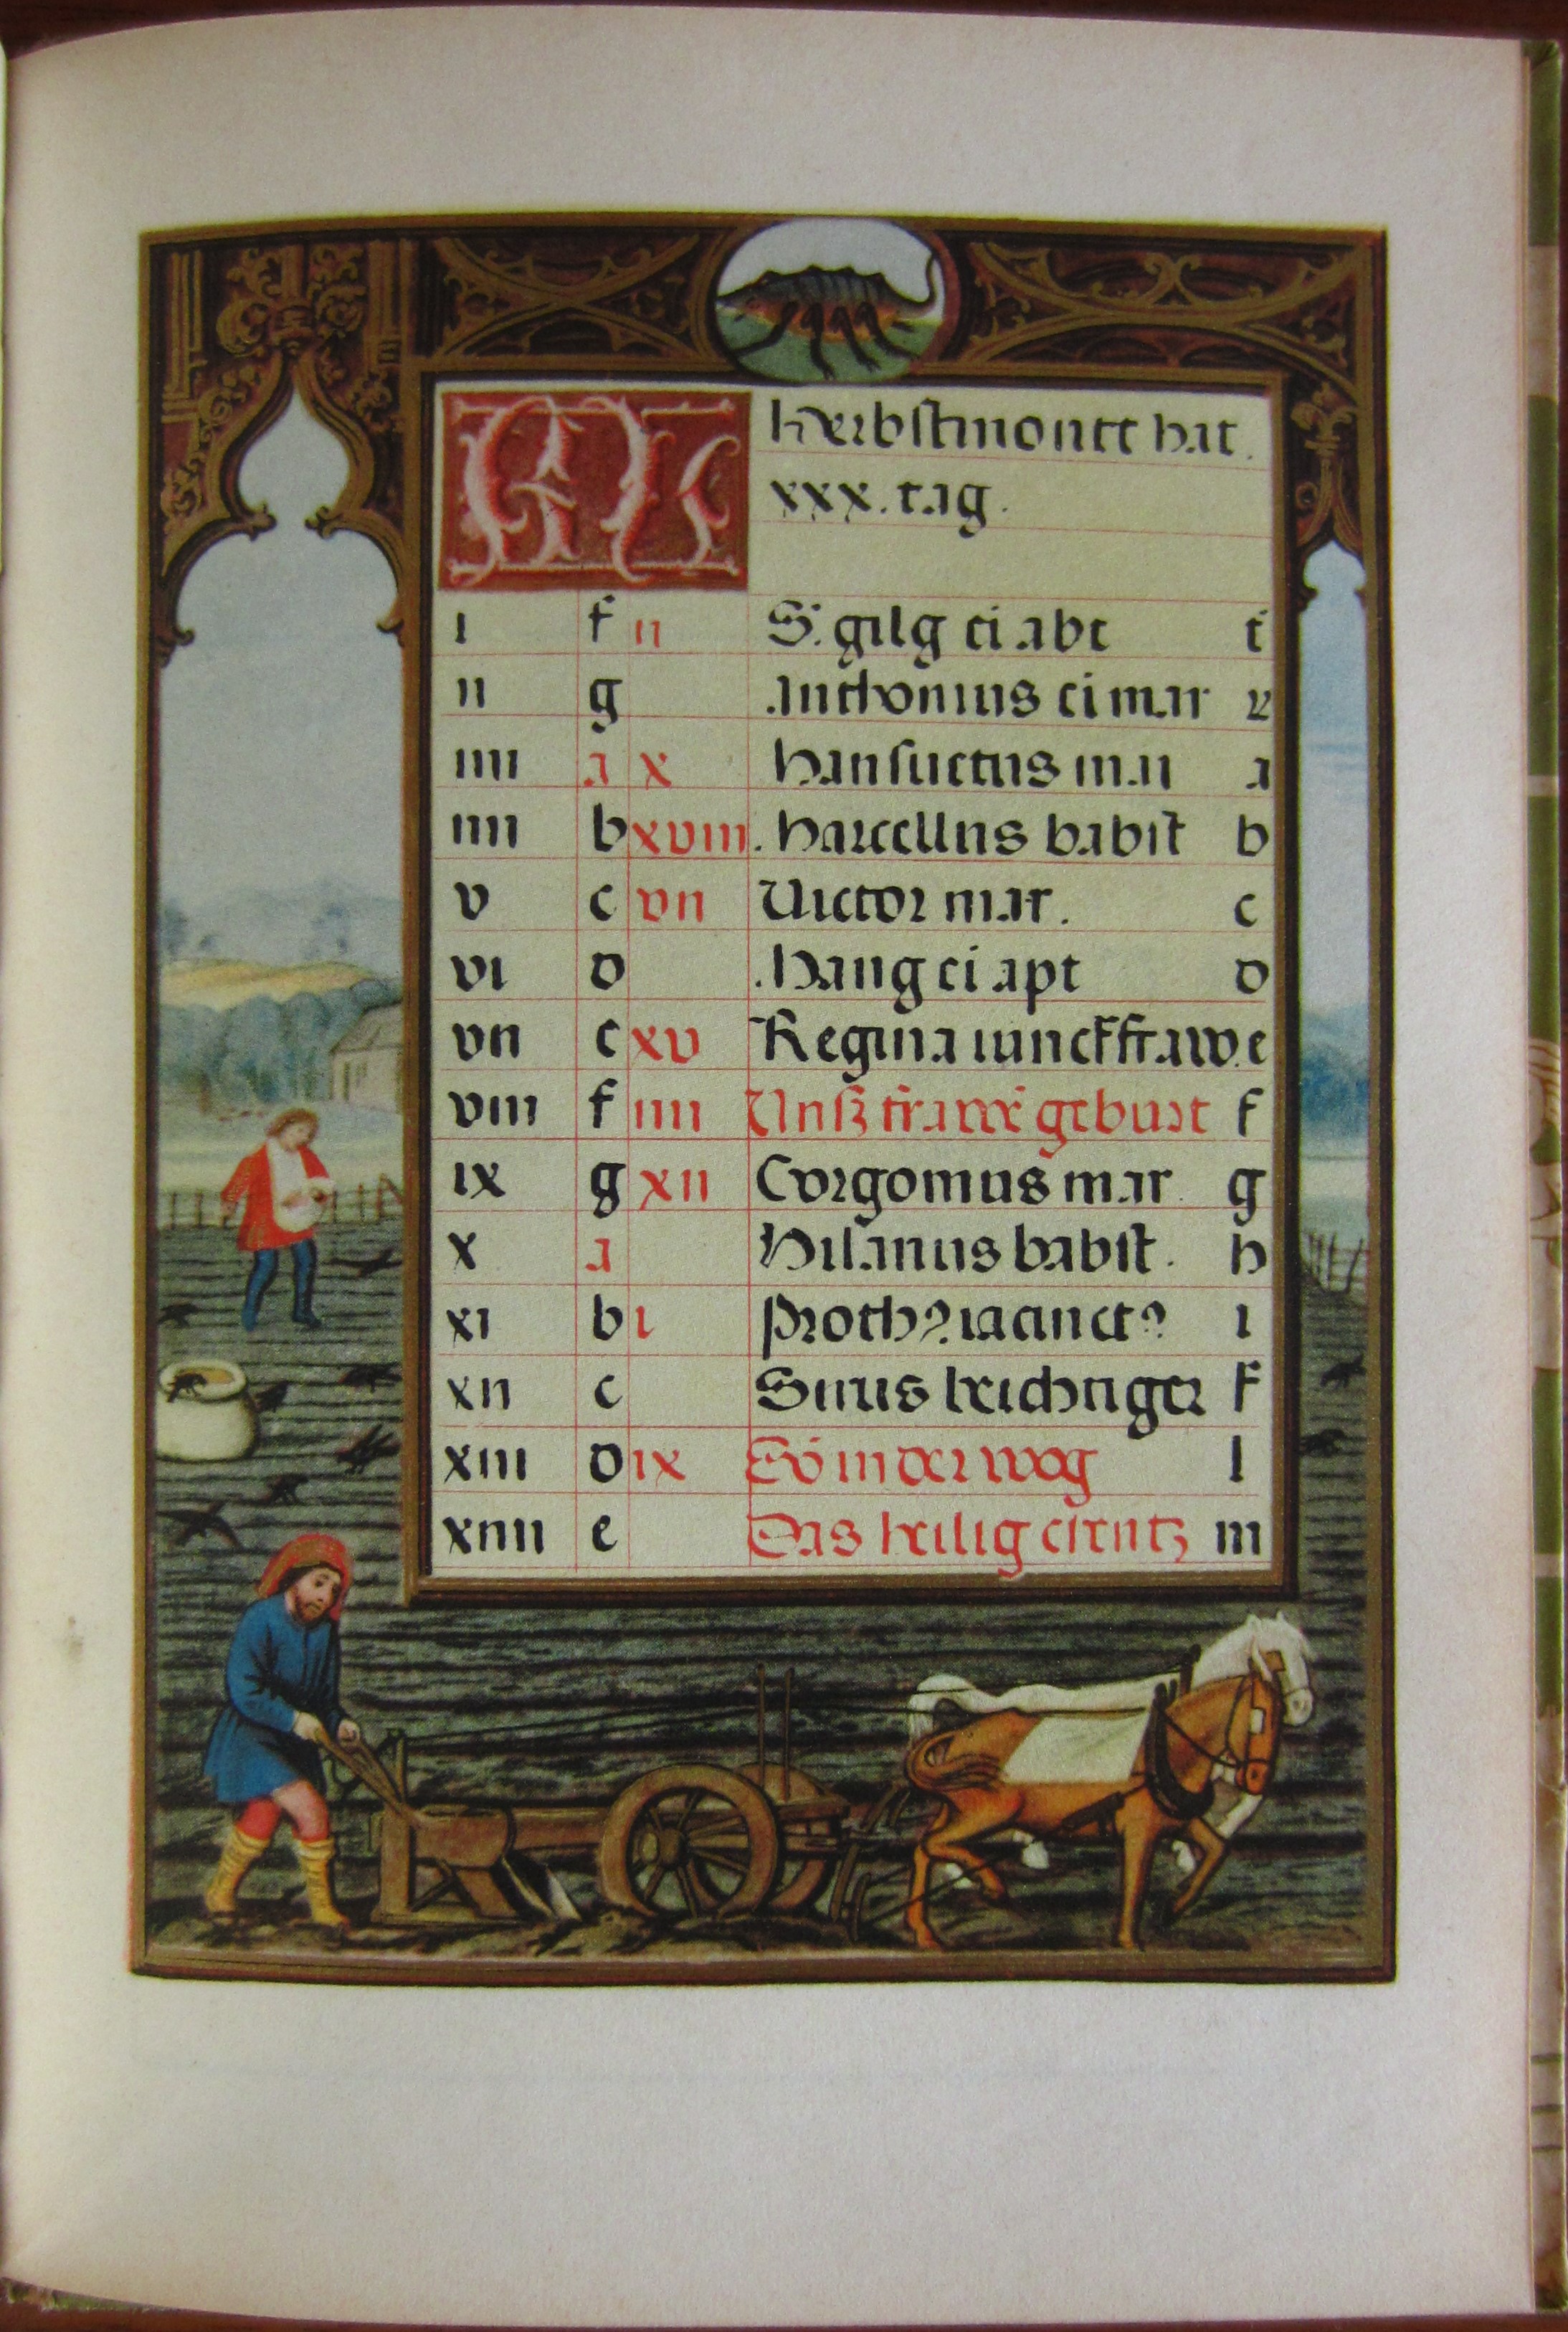 KL herbstmonet hat.
xxx. tag.
i f ii S. gilg ei abt t
ii g Anthonius ei mar v
iiii a x Mansuetus mar a
iiii b xviii. Marcellus babst b
v c vii Victor mar. c
vi d .Mang ei apt d
vii e xv Regina iunckfraw. e
viii f iiii Vnß frawe geburt f
ix g xii Gorgonius mar. g
x a Hilarius babst. h
xi b i Proth? iacinct? i
xii c Sirus beichtiger k
xiii d ix in der wog l
xiiii e Das heilig creutz m